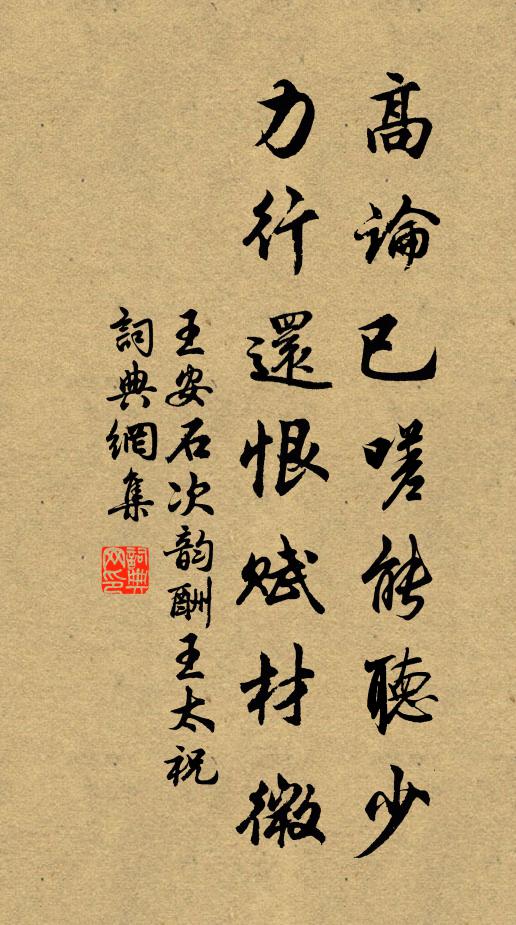 高論已嗟能聽少
力行還恨賦材微
王安石次韵酬王太祝
詞典網集
詞典網印